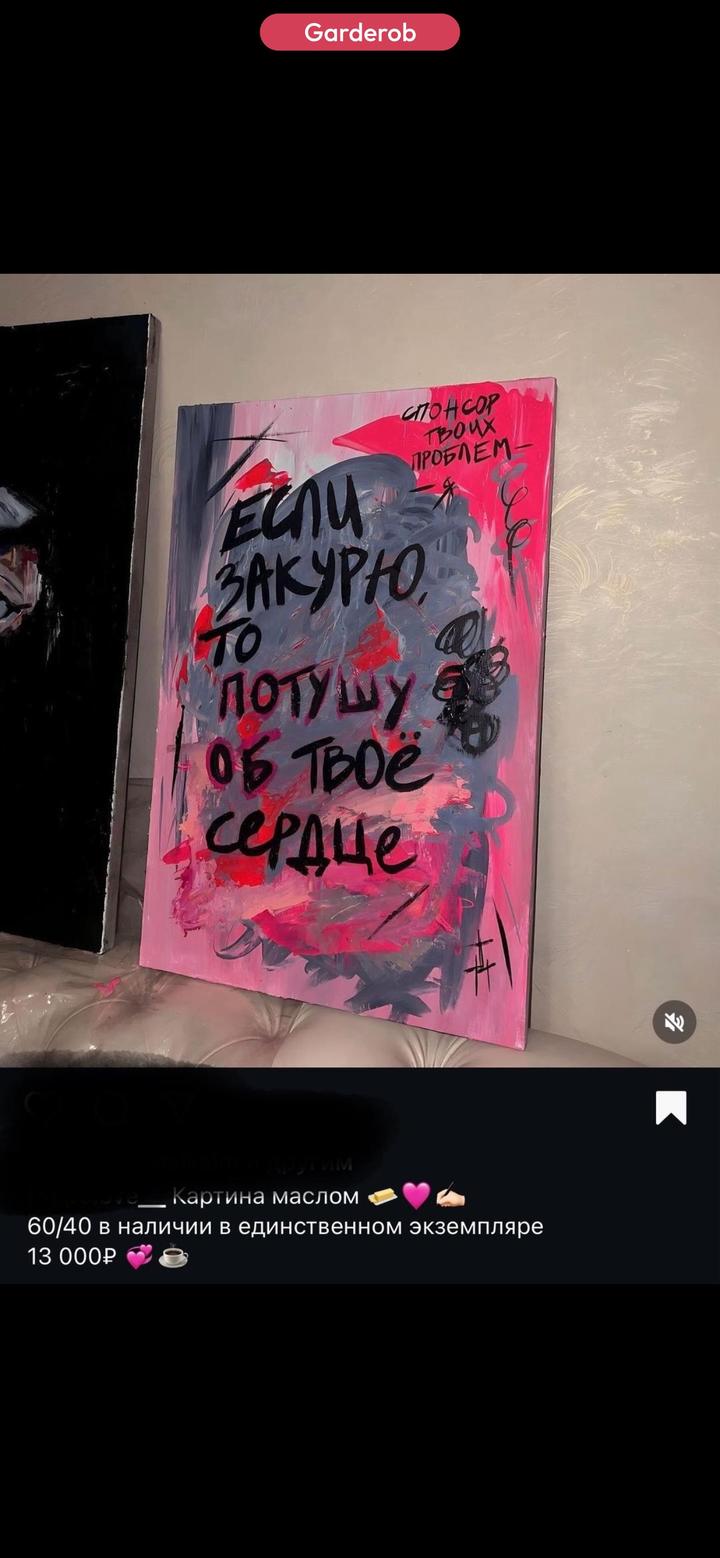 Garderob
СПОНСОР
ТВОИХ
ПРОБЛЕМ—
— Я
ЕСЛИ
ЗАКУРЮ,
ТО
ПОТУШУ
ОБ ТВОЁ
СЕРДЦЕ
другим
Картина маслом 🧈🩷✍🏻
60/40 в наличии в единственном экземпляре
13 000₽ 💞☕